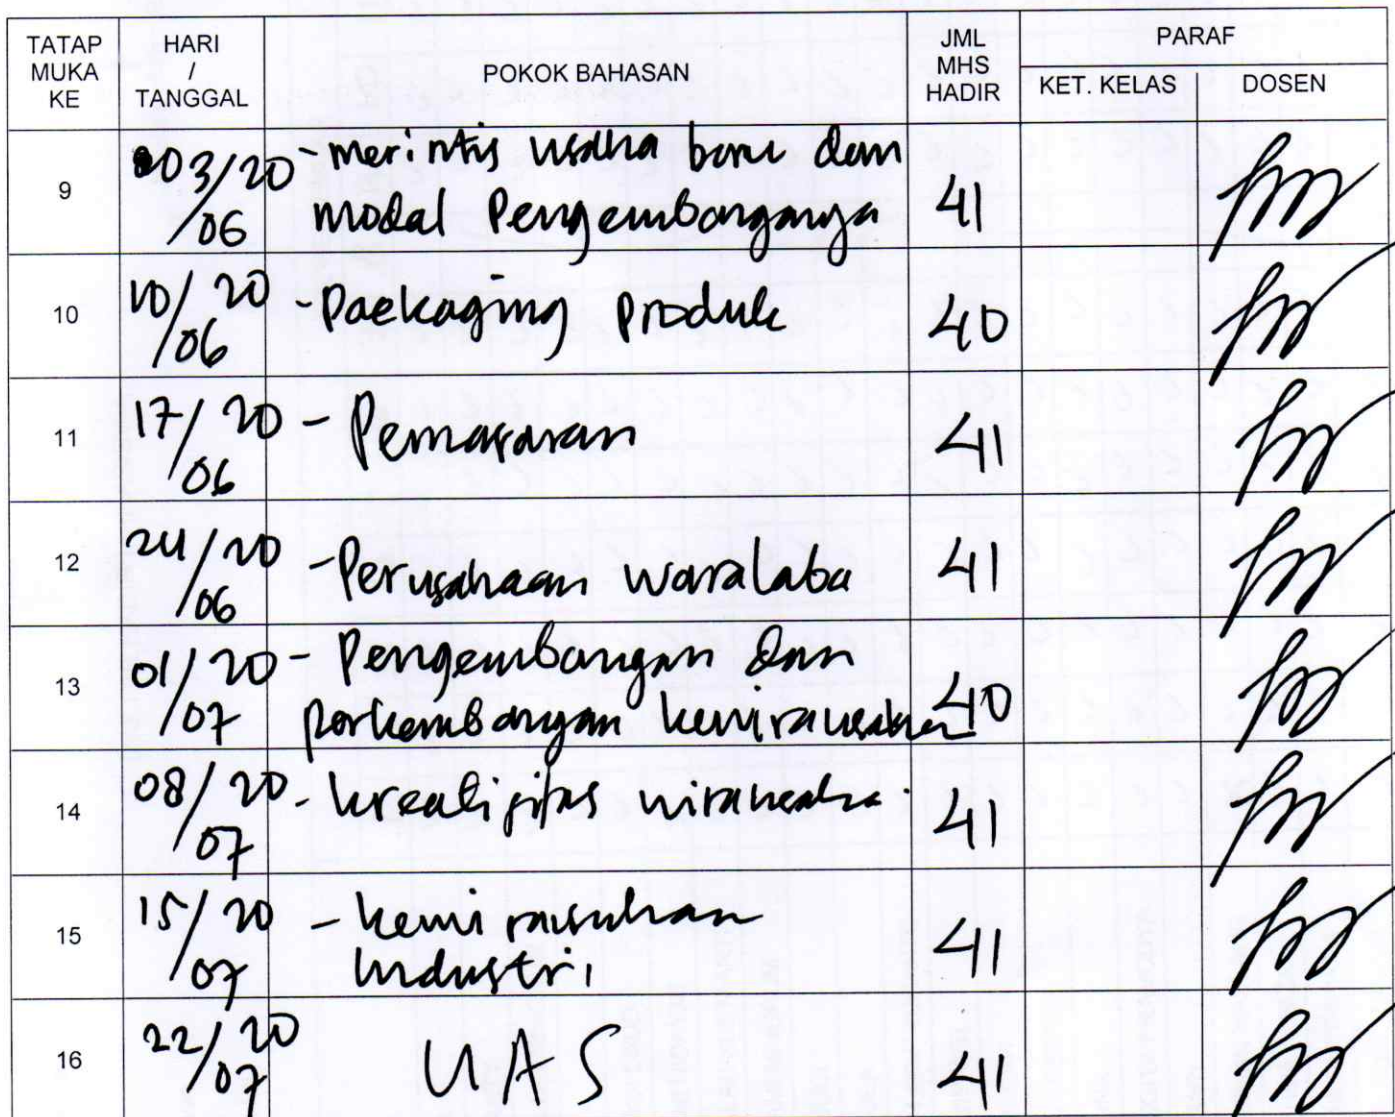 TATAP MUKA KE HARI / TANGGAL POKOK BAHASAN JML MHS HADIR PARAF
KET. KELAS DOSEN
9 03/06 20 - merintis usaha baru dan 41
modal Pengembanganya
10 10/06 20 - Packaging Produk 40
11 17/06 20 - Pemasaran 41
12 24/06 20 - Perusahaan waralaba 41
13 01/07 20 - Pengembangan dan 40
perkembangan kewirausahaan
14 08/07 20 - kreatifitas wirausaha 41
15 15/07 20 - kewirausahaan 41
Industri
16 22/07 20 UAS 41